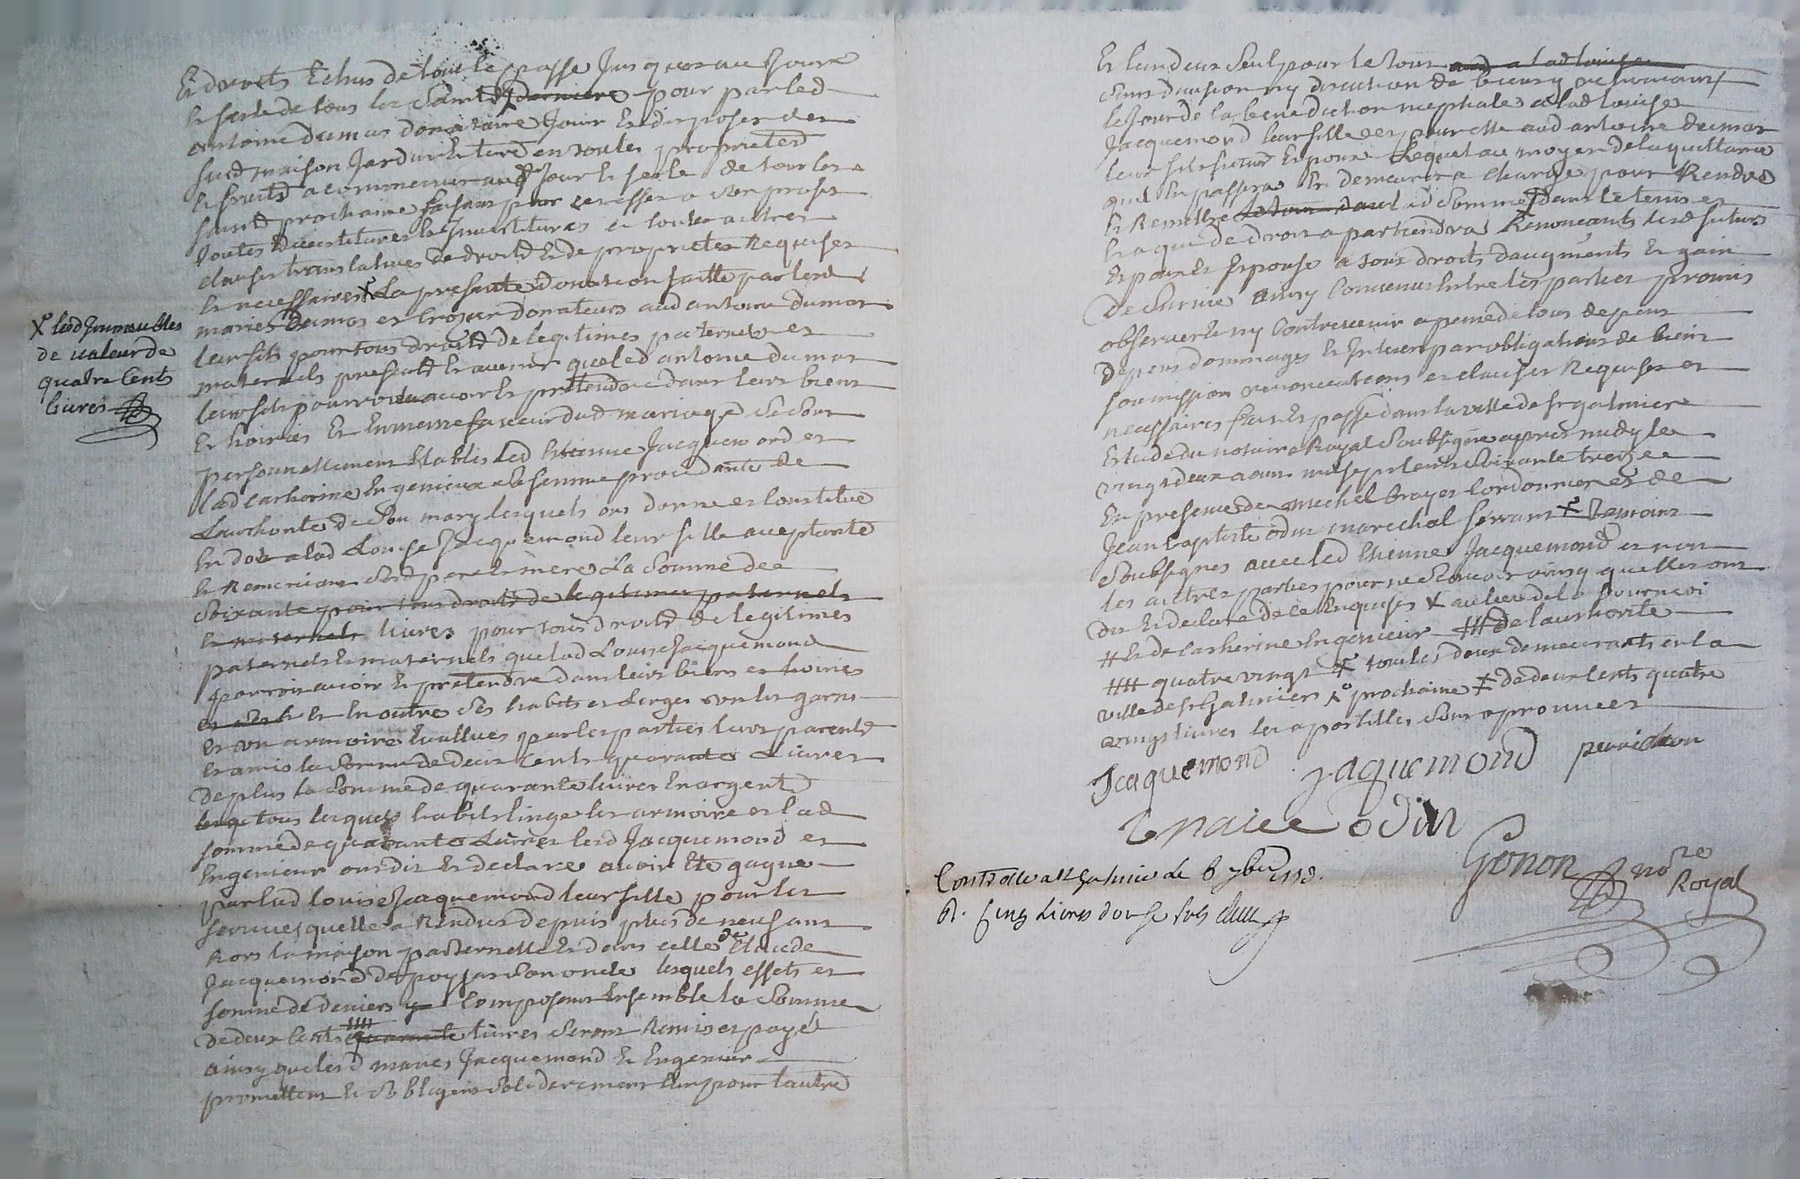 Et droits Echus de tout le passé Jusques au Jour
et feste de tous les Saints derniere pour par led
antoine dumas donataire Jouir Et disposer des
susd maison Jardin Et terre en toutes proprieted
Et fruits a commencer aud Jour Et feste de tous les
saints prochaine faisant pour ce cesser a son profit
toutes Devestitures Et Investitures et toutes autres
clauses translatives de droits Et de proprietes Requises
Et necessaires X La presente donation faitte par lesd
maries dumas et donateurs aud antoine dumas
leur fils pour tous droits de legitimes paternels et
maternels presents Et avenir que led antoine dumas
leur fils pourroit avoir Et pretendre dans leurs biens
Et hoiries Et En meme faveur dud mariage Se Sont
personnellement Etablis led Etienne Jacquemond et
lad catherine Engenieux sa femme procedante de
Lauthorite de Son mary lesquels ont donné et Constitué
En dot a lad Louise Jacquemond leur fille acceptante
Et Remerciant sesd pere Et mere La Somme de
Soixante pour tous droits de legitimes paternels
Et maternels livres pour tous droits de legitimes
paternels Et maternels que lad Louise Jacquemond
pourroit avoir Et pretendre dans leurs biens et hoiries
Et En outre Ses habits et Linges un lit garni
et un armoire Evallues par les parties leurs parents
et amis la Somme de deux Cents quarante Livres
De plus la Somme de quarante livres En argent
tous lesquels habits linge lit armoire et lad
somme de quarante Livres lesd Jacquemond et
Engenieux ont dit Et declaré avoir Eté gagné
par lad louise Jacquemond leur fille pour les
services quelle a Rendus depuis plus de neuf ans
hors la maison paternelle Et dans celle de Claude
Jacquemond Son oncle lesquels effets et
somme de deniers Composent Ensemble la Somme
de deux Cents #### quarante livres Seront Remis et payé
ainsy que lesd maries Jacquemond Et Engenieux
promettent Et Sobligent Solidairement Lun pour lautre
X lesd Immeubles
de valeur de
quatre Cents
livres
Et lun deux Seul pour le tout aud a lad louise
sans division ny discution de biens y renoncants
le Jour de la benediction nuptiale a lad louise
Jacquemond leur fille et pour elle aud antoine dumas
leur fils futur Epoux lequel au moyen de la quittance
quil En passera En demeurera chargé pour Rendre
Et Remettre lad Somme dans le tems et
Et a qui de droit apartiendra Renoncants lesd futurs
Epoux Et Epouse a tous droits daugments Et gain
De Survie ainsy Convenu Entre les parties promis
observer Et ny Contrevenir a peine de tous depens
Depens dommages Et Interets par obligations de biens
soumission renonciations et clauses Requises et
necessaires fait Et passé dans la ville de St galmier
Estude du notaire Royal Soubsigné apres midy le
vingt deux aoust mil sept cents Soixante treize
En presence de michel brayet Cordonnier et de
Jean baptiste odin marechal ferrant X temoins
Soubsignes avec led Etienne Jacquemond et non
les autres parties pour ne Scavoir ainsy quelles ont
dit Et declaré de ce Enquises X au lieu de le pourvoi
# Et de Catherine Engenieux ### de lauthorité
#### quatre vingt X tous les deux demeurants en la
ville de St Galmier X° prochaine X de deux Cents quatre
vingt livres les apostilles Sont aprouvées
Jcaquemond Jaquemond
odin
Gonon No.re
Royal
Controlé a St Galmier le 6 7bre 1773.
R. Cinq Livres douze sols